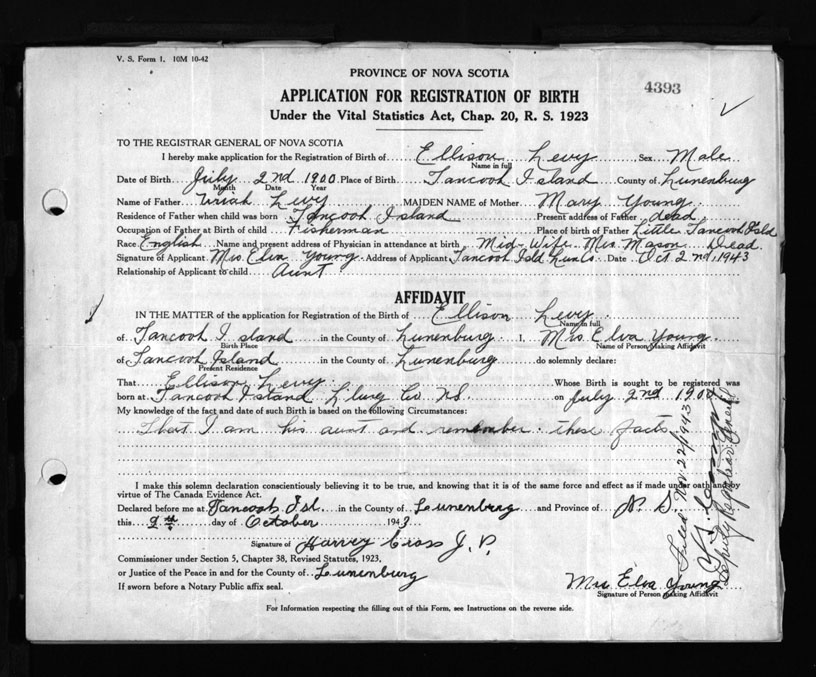 V. S. Form 1. 10M 10-42
PROVINCE OF NOVA SCOTIA
4393
APPLICATION FOR REGISTRATION OF BIRTH
Under the Vital Statistics Act, Chap. 20, R. S. 1923
TO THE REGISTRAR GENERAL OF NOVA SCOTIA
I hereby make application for the Registration of Birth of Ellison Levy, Sex Male
Name in full
Date of Birth July 2nd 1900 Place of Birth Tancook Island County of Lunenburg
Month Date Year
Name of Father Uriah Levy MAIDEN NAME of Mother Mary Young
Residence of Father when child was born Tancook Island Present address of Father dead
Occupation of Father at Birth of child Fisherman Place of birth of Father Little Tancook Isld
Race English Name and present address of Physician in attendance at birth Mid-Wife Mrs. Mason Dead.
Signature of Applicant Mrs Elva Young Address of Applicant Tancook Isld Lun Co. Date Oct 2nd, 1943
Relationship of Applicant to child Aunt
AFFIDAVIT
IN THE MATTER of the application for Registration of the Birth of Ellison Levy
Name in full
of Tancook Island in the County of Lunenburg I, Mrs. Elva Young
Birth Place Name of Person Making Affidavit
of Tancook Island in the County of Lunenburg do solemnly declare:
Present Residence
That Ellison Levy Whose Birth is sought to be registered was
born at Tancook Island L'burg Co NS. on July 2nd 1900
My knowledge of the fact and date of such Birth is based on the following Circumstances:
That I am his aunt and remember these facts
I make this solemn declaration conscientiously believing it to be true, and knowing that it is of the same force and effect as if made under oath and by
virtue of The Canada Evidence Act.
Declared before me at Tancook Isl. in the County of Lunenburg and Province of N. S.
this 9th day of October 1943
Signature of Harvey Cross J. P.
Commissioner under Section 5, Chapter 38, Revised Statutes, 1923,
or Justice of the Peace in and for the County of Lunenburg
If sworn before a Notary Public affix seal.
Mrs. Elva Young
Signature of Person making Affidavit
For Information respecting the filling out of this Form, see Instructions on the reverse side.
Filed Nov. 22/1943
Deputy Registrar General